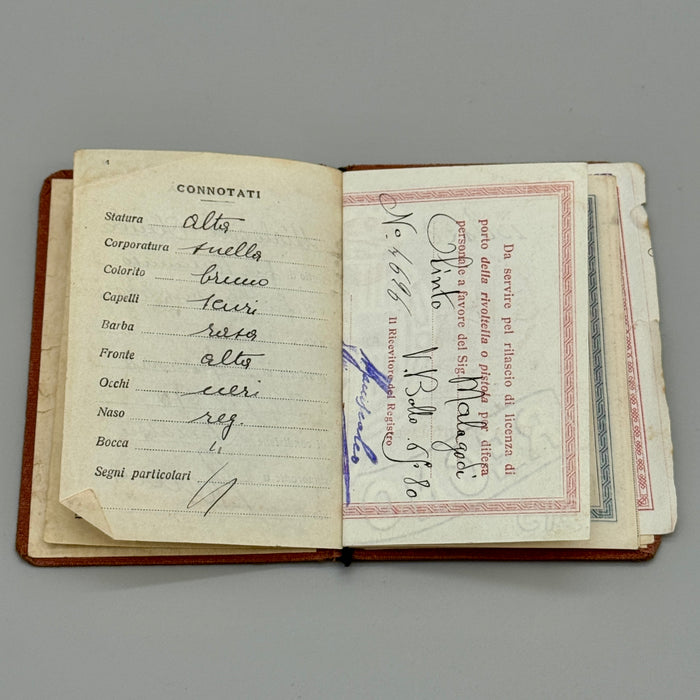 4
CONNOTATI
Statura alta
Corporatura snella
Colorito bruno
Capelli scuri
Barba rasa
Fronte alta
Occhi neri
Naso reg.
Bocca "
Segni particolari //
Da servire pel rilascio di licenza di
porto della rivoltella o pistola per difesa
personale a favore del Sig. Malagodi
Olinto V. Bollo
Il Ricevitore del Registro
No. 4696